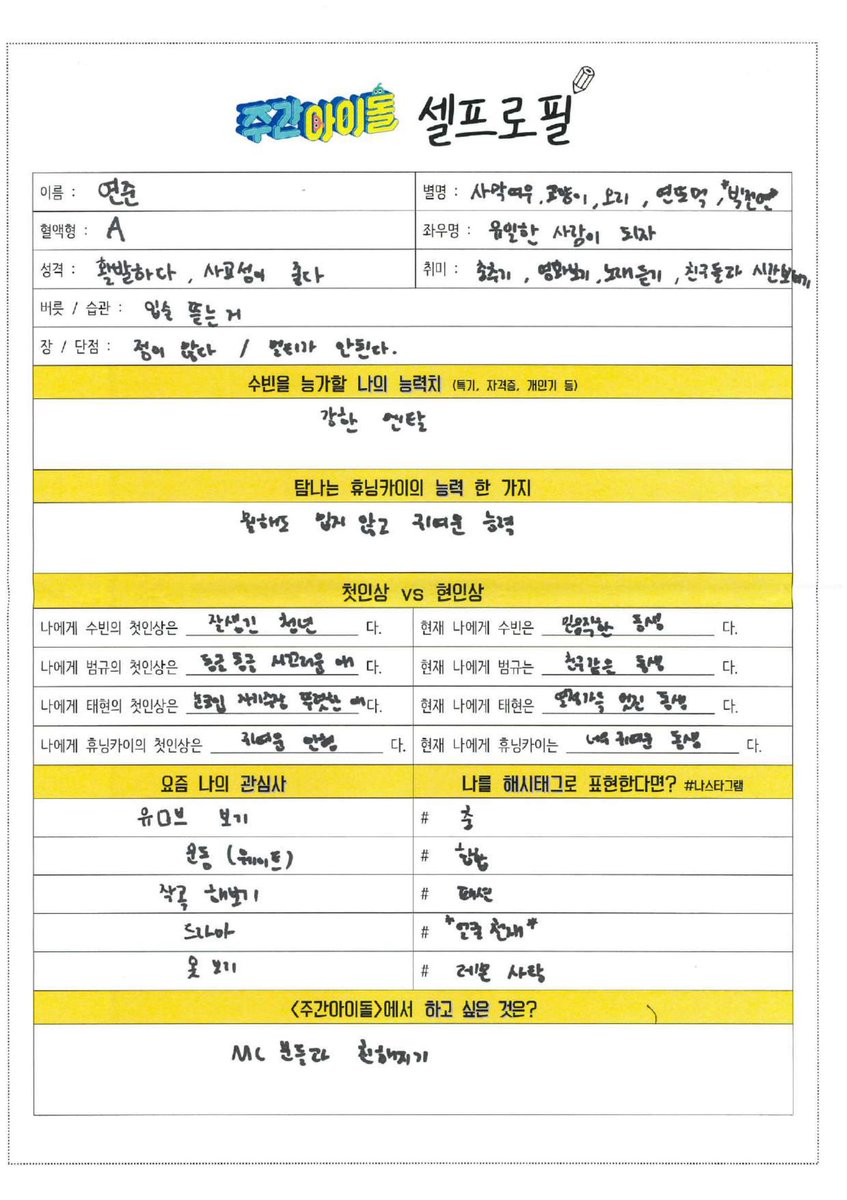 주간아이돌 셀프로필
이름 : 연준
별명 : 사막여우, 고양이, 오리, 연뜨먹, *빅진연*
혈액형 : A
좌우명 : 유일한 사람이 되자
성격 : 활발하다, 사교성이 좋다
취미 : 춤추기, 영화보기, 노래듣기, 친구들과 시간보내기
버릇 / 습관 : 입술 뜯는거
장 / 단점 : 정이 많다 / 멀티가 안된다.
수빈을 능가할 나의 능력치 (특기, 자격증, 개인기 등)
강한 멘탈
탐나는 휴닝카이의 능력 한 가지
뭘해도 밉지 않고 귀여운 능력
첫인상 vs 현인상
나에게 수빈의 첫인상은 잘생긴 청년 다.
현재 나에게 수빈은 믿음직한 동생 다.
나에게 범규의 첫인상은 둥글둥글 시끄러울 애 다.
현재 나에게 범규는 친구같은 동생 다.
나에게 태현의 첫인상은 눈코입 자기주장 뚜렷한 애 다.
현재 나에게 태현은 멋진 동생 다.
나에게 휴닝카이의 첫인상은 귀여운 인형 다.
현재 나에게 휴닝카이는 너무 귀여운 동생 다.
요즘 나의 관심사
나를 해시태그로 표현한다면? #나스타그램
유ㅁ브 보기
# 춤
운동 (웨이트)
# 힙합
작곡 해보기
# 패션
드라마
# *얼굴 천재*
옷 보기
# 레몬 사탕
<주간아이돌>에서 하고 싶은 것은?
MC 분들과 친해지기